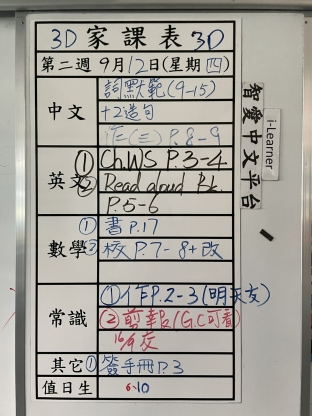 3D 家課表 3D
第二週 9月12日(星期四)
中文
詞默範(9-15)
+2造句
作(三) P.8-9
英文
① Ch.WS P.3-4
② Read aloud Bk.
P.5-6
數學
① 書 P.17
② 校 P.7-8+改
常識
① 作 P.2-3 (明天交)
② 剪報 (G.C可看)
16/9 交
其它
① 簽手冊 P.3
值日生
6,10
智愛中文平台
i-Learner